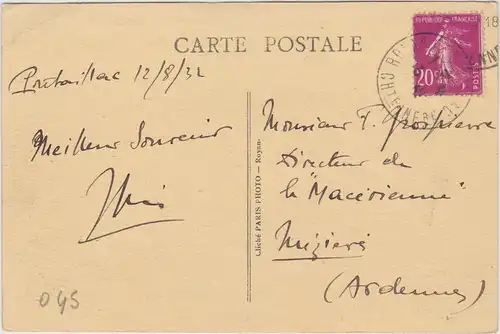 CARTE POSTALE
Pontaillac 12/8/32
Meilleur Souvenir
045
Cliché PARIS PHOTO — Royan
REPUBLIQUE FRANÇAISE
20
POSTES
18
Monsieur F.
Directeur de
la "Macérienne"
Mézières
(Ardennes)